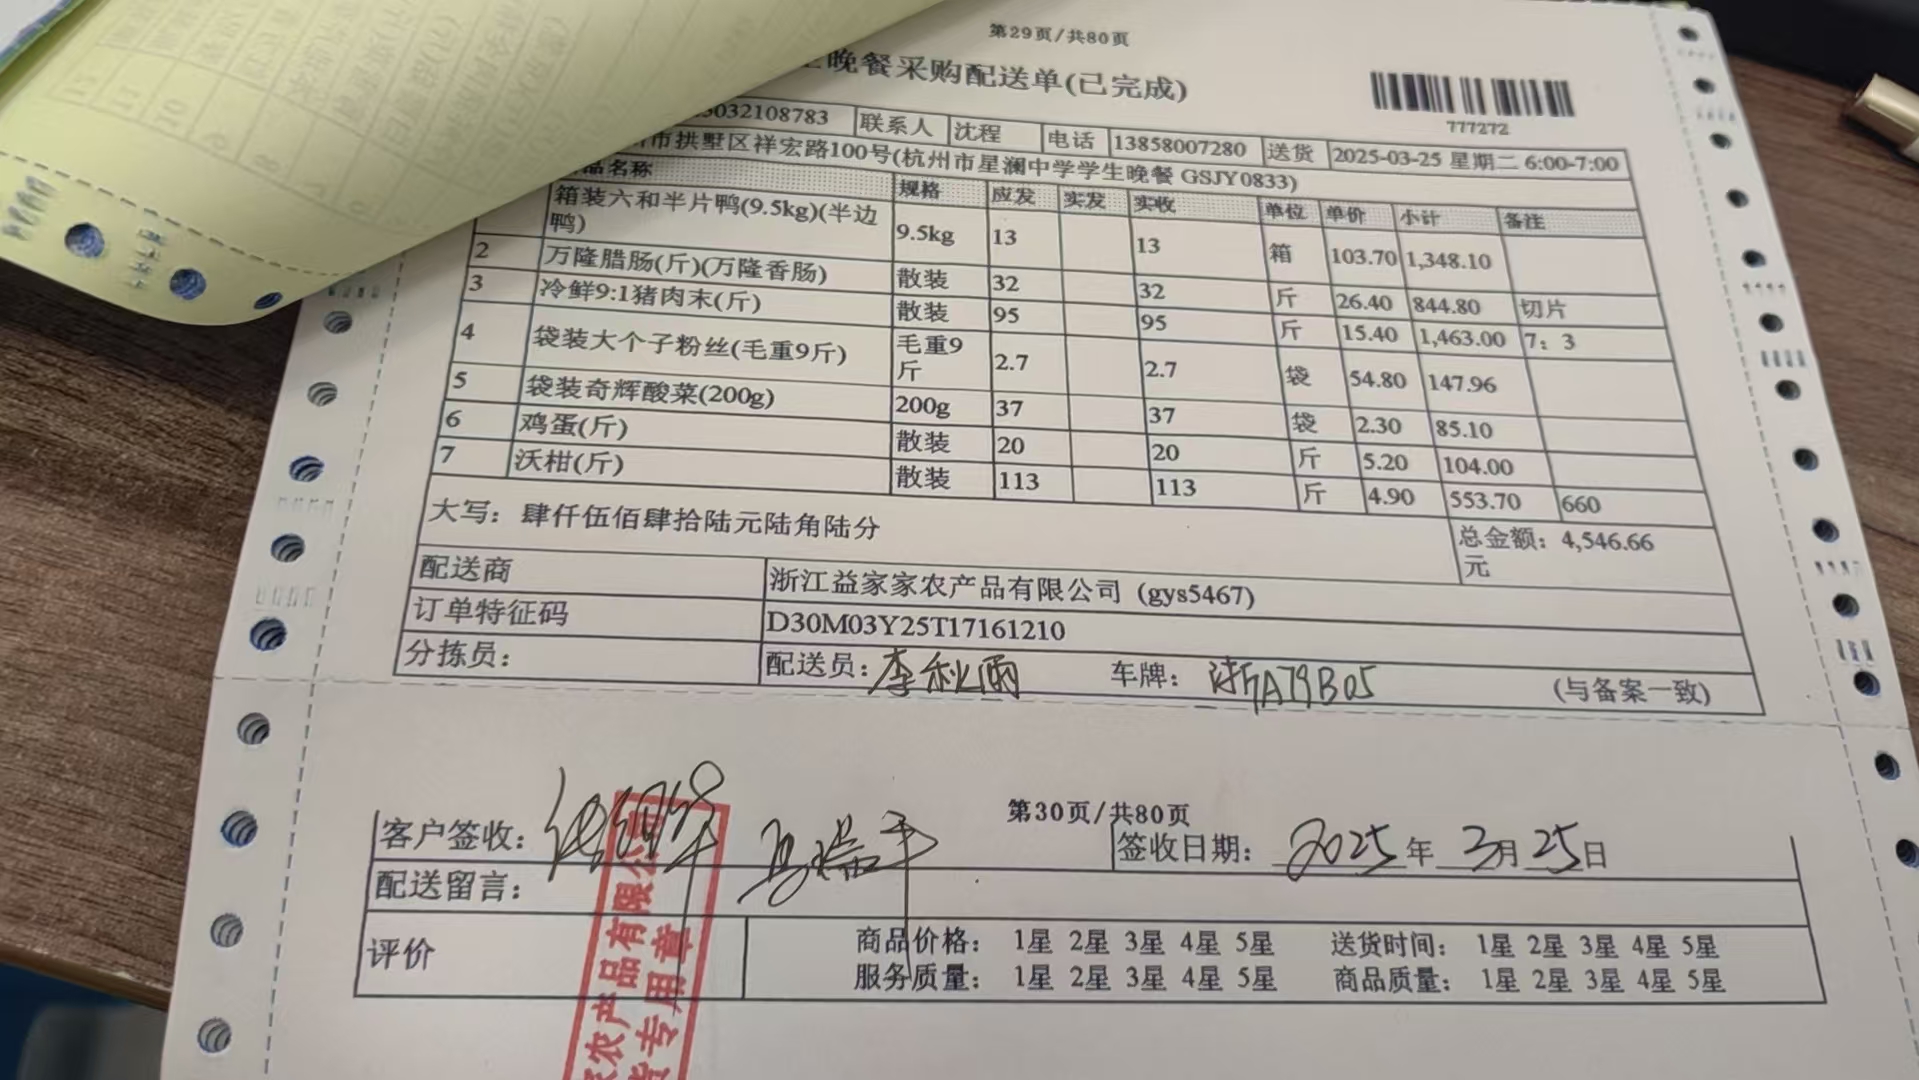 第29页/共80页
晚餐采购配送单(已完成)
777272
5032108783 联系人 沈程 电话 13858007280 送货 2025-03-25 星期二 6:00-7:00
市拱墅区祥宏路100号(杭州市星澜中学学生晚餐 GSJY0833)
品名称 规格 应发 实发 实收 单位 单价 小计 备注
箱装六和半片鸭(9.5kg)(半边鸭) 9.5kg 13 13 箱 103.70 1,348.10
2 万隆腊肠(斤)(万隆香肠) 散装 32 32 斤 26.40 844.80 切片
3 冷鲜9:1猪肉末(斤) 散装 95 95 斤 15.40 1,463.00 7：3
4 袋装大个子粉丝(毛重9斤) 毛重9斤 2.7 2.7 袋 54.80 147.96
5 袋装奇辉酸菜(200g) 200g 37 37 袋 2.30 85.10
6 鸡蛋(斤) 散装 20 20 斤 5.20 104.00
7 沃柑(斤) 散装 113 113 斤 4.90 553.70 660
大写：肆仟伍佰肆拾陆元陆角陆分 总金额：4,546.66元
配送商 浙江益家家农产品有限公司 (gys5467)
订单特征码 D30M03Y25T17161210
分拣员： 配送员：李秋雨 车牌：浙A79B05 (与备案一致)
第30页/共80页
客户签收： 签收日期：2025年3月25日
配送留言：
评价 商品价格： 1星 2星 3星 4星 5星 送货时间： 1星 2星 3星 4星 5星
服务质量： 1星 2星 3星 4星 5星 商品质量： 1星 2星 3星 4星 5星
农产品有限公司
专用章